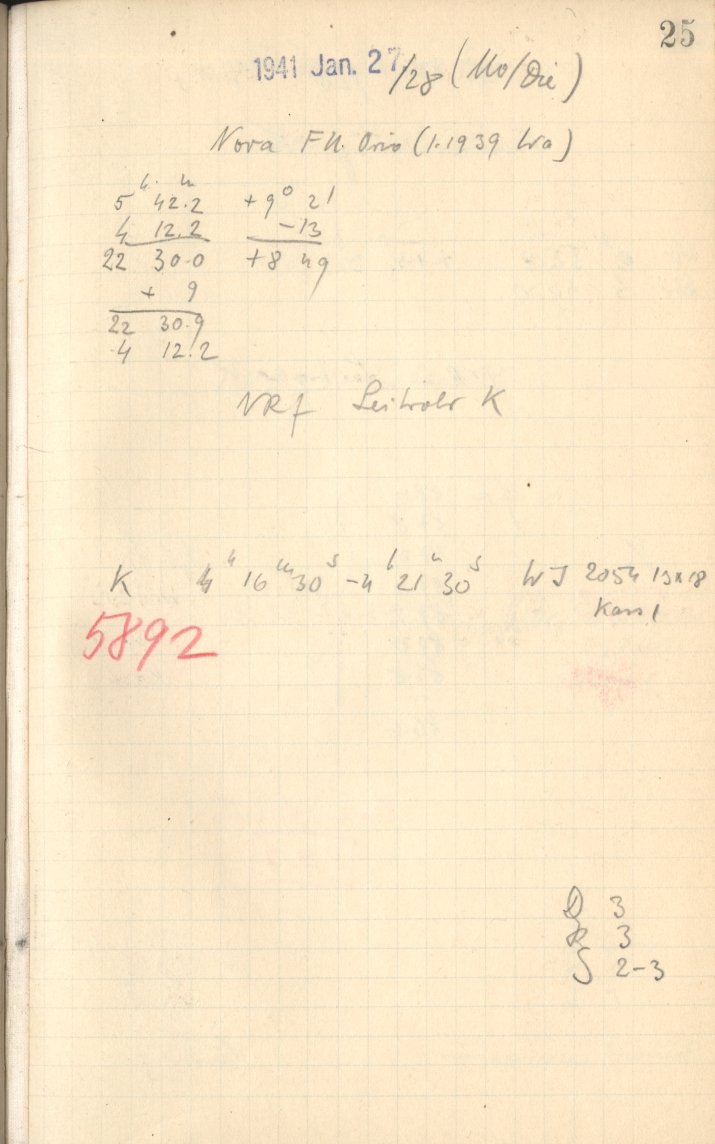 25
1941 Jan. 27./28 (Mo/Die)
Nova FU. Orio (1.1939 Wa)
5 h 42.2 m +9° 21'
4 12.2 -13
22 30.0 +8 49
+ 9
22 30.9
4 12.2
NRf Leitrohr K
K 4 h 16 m 30 s - 4 h 21 m 30 s WJ 2054 13x18
Kass 1
5892
D 3
R 3
S 2-3